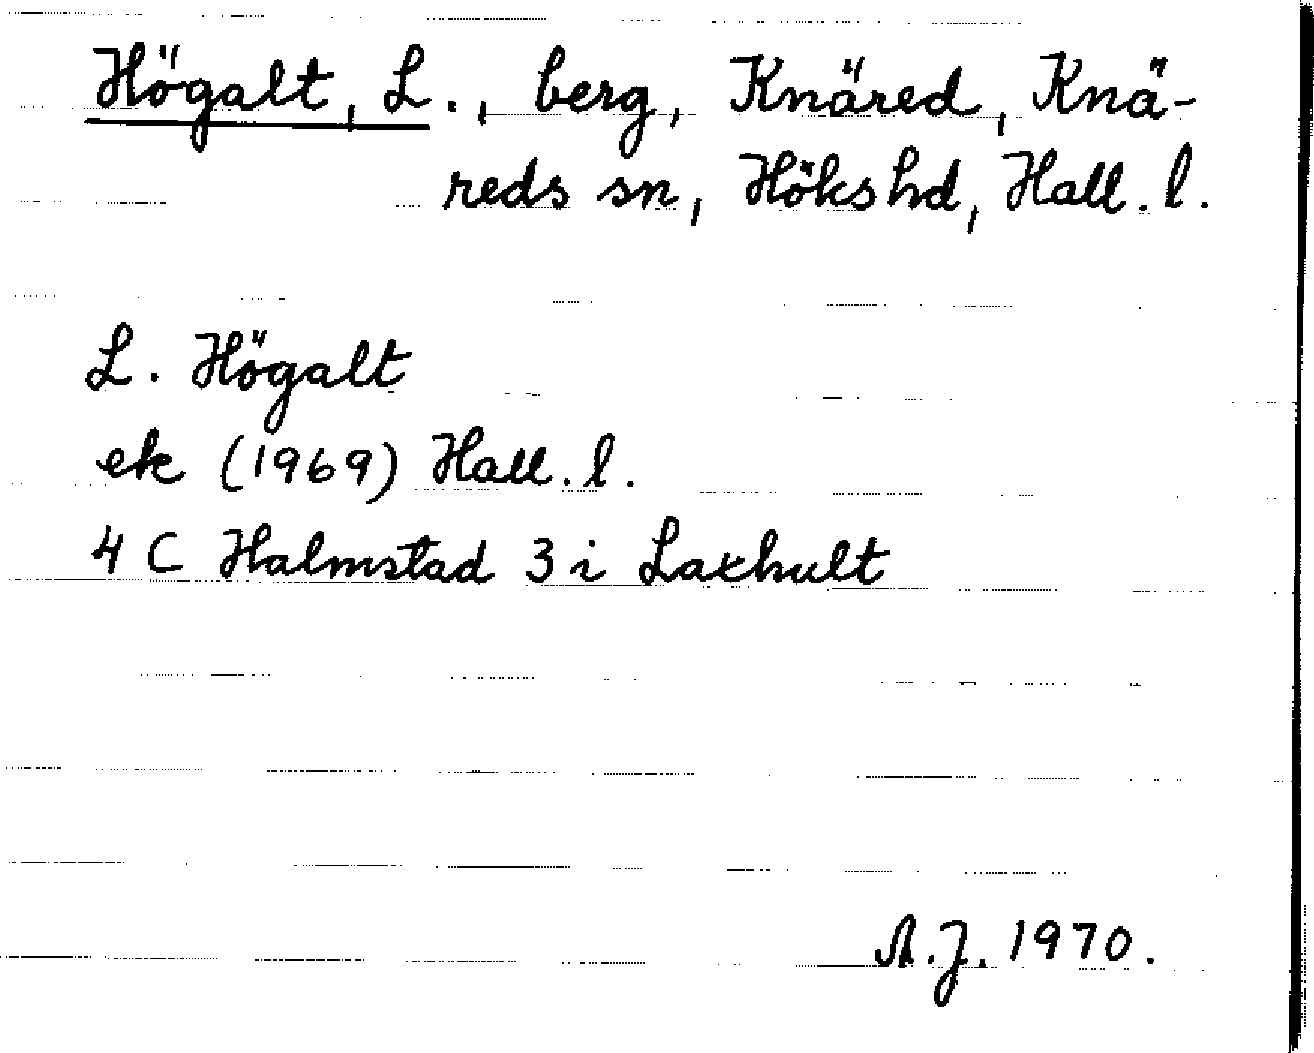 Högalt, L., berg, Knäred, Knä-
reds sn, Höks hd, Hall. l.
L. Högalt
ek (1969) Hall. l.
4 C Halmstad 3 i Laxhult
A.J. 1970.